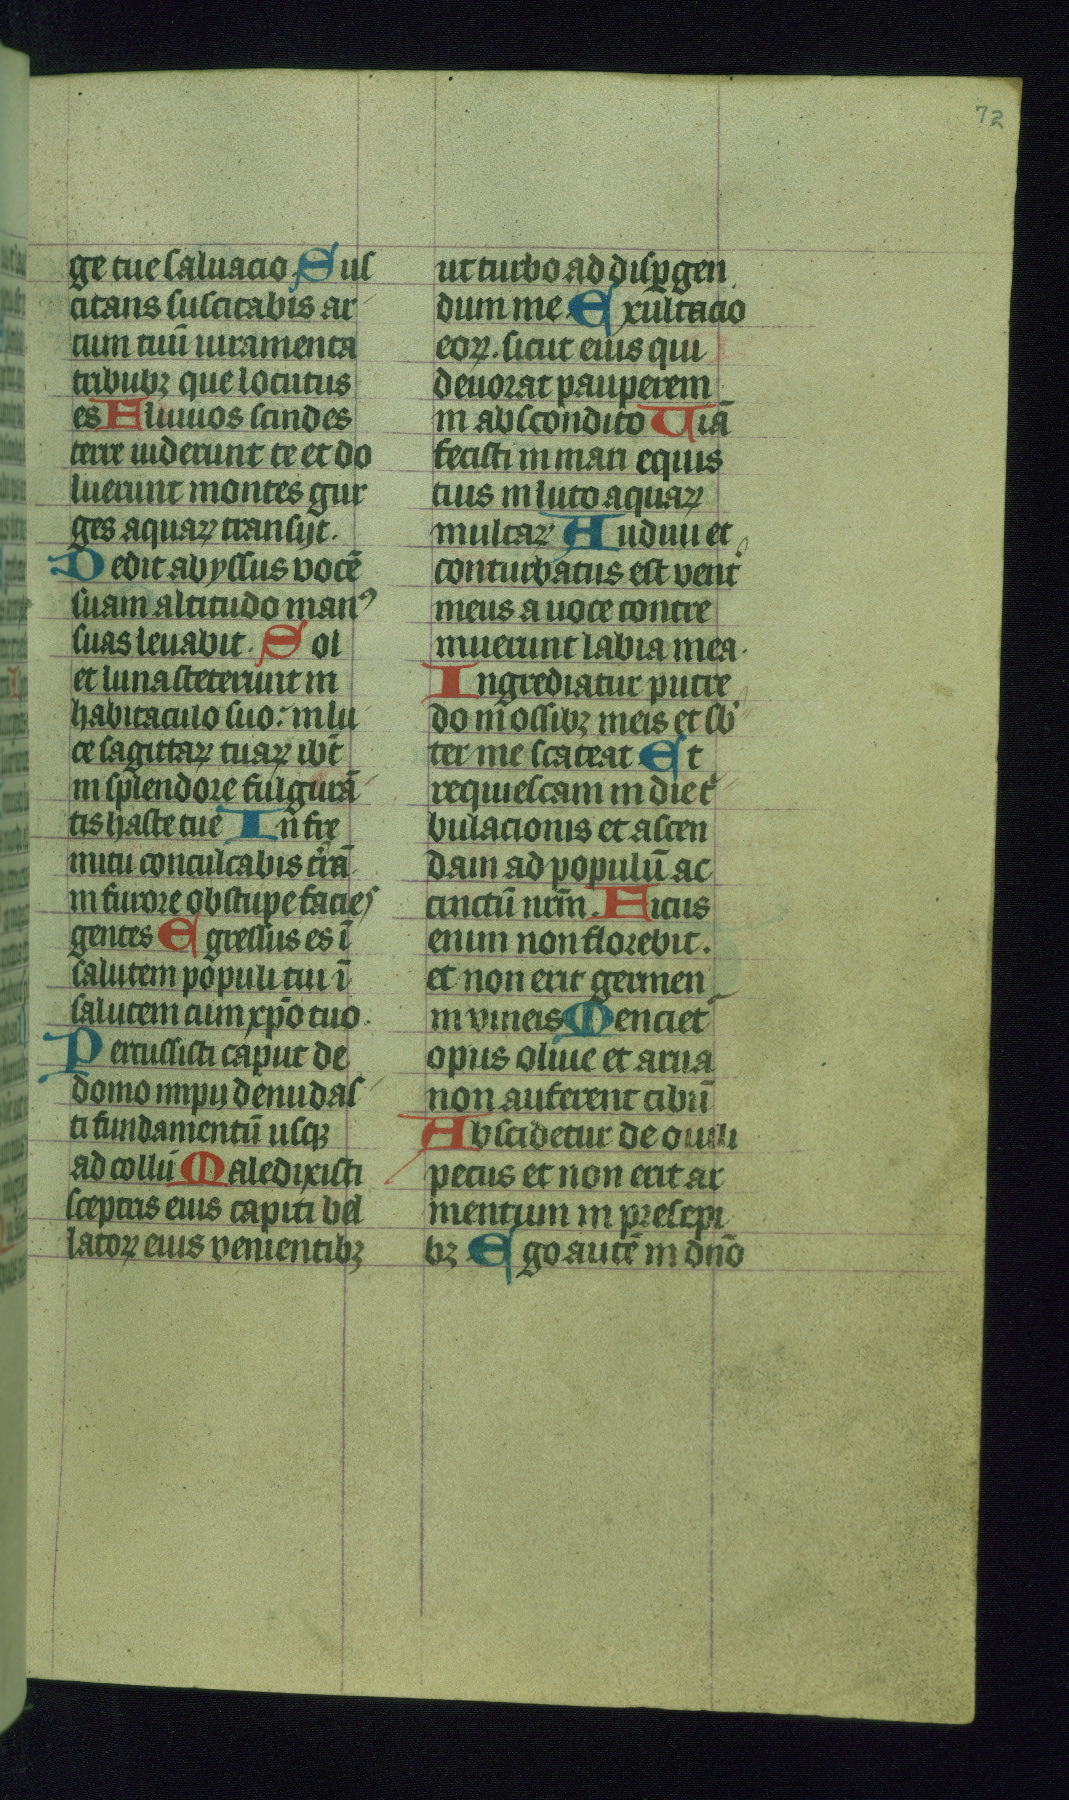 72
ge tue saluacio Sus
citans suscitabis ar
cum tuū iuramenta
tribubꝫ que locutus
es Fluuios scindes
terre uiderunt te et do
luerunt montes gur
ges aquaꝝ transijt.
Dedit abyssus vocē
suam altitudo manꝰ
suas leuabit. Sol
et luna steterunt in
habitaculo suo: in lu
ce sagittaꝝ tuaꝝ ibūt
in splendore fulgurā
tis haste tue In fre
mitu conculcabis t̄rā
in furore obstupe facies
gentes Egressus es ī
salutem populi tui ī
salutem cum xp̄o tuo.
Percussisti caput de
domo impij denudas
ti fundamentū usqꝫ
ad collū Maledixisti
sceptris eius capiti bel
latoꝝ eius venientibꝫ
ut turbo ad disꝑgen
dum me Exultacio
eoꝝ. sicut eius qui
deuorat pauperem
in abscondito Uiā
fecisti in mari equis
tuis in luto aquaꝝ
multaꝝ Audiui et
conturbatus est vent᾽
meus a uoce contre
muerunt labia mea.
Ingrediatur putre
do in ossibꝫ meis et sb᾽
ter me scateat Et
requiescam in die t᾽
bulacionis et ascen
dam ad populū ac
cinctū nr̄m. Ficus
enim non florebit.
et non erit germen
in vineis Menciet᾽
opus oliue et arua
non afferent cibū
Abscidetur de ouili
pecus et non erit ar
mentum in presepi
bꝫ Ego autē in dn̄o